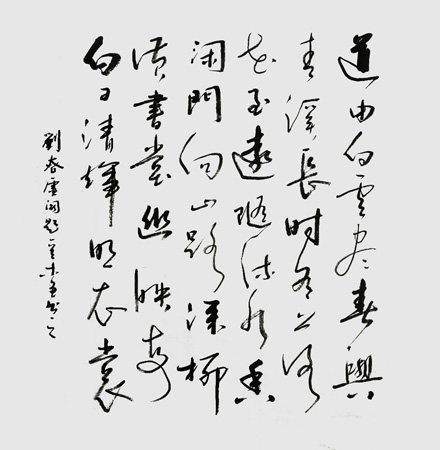 道由白云尽春與
青溪長时有落
花至遠隨流水香
闲門向山路深柳
讀書堂幽映每
白日清輝照衣裳
劉昚虛闕题